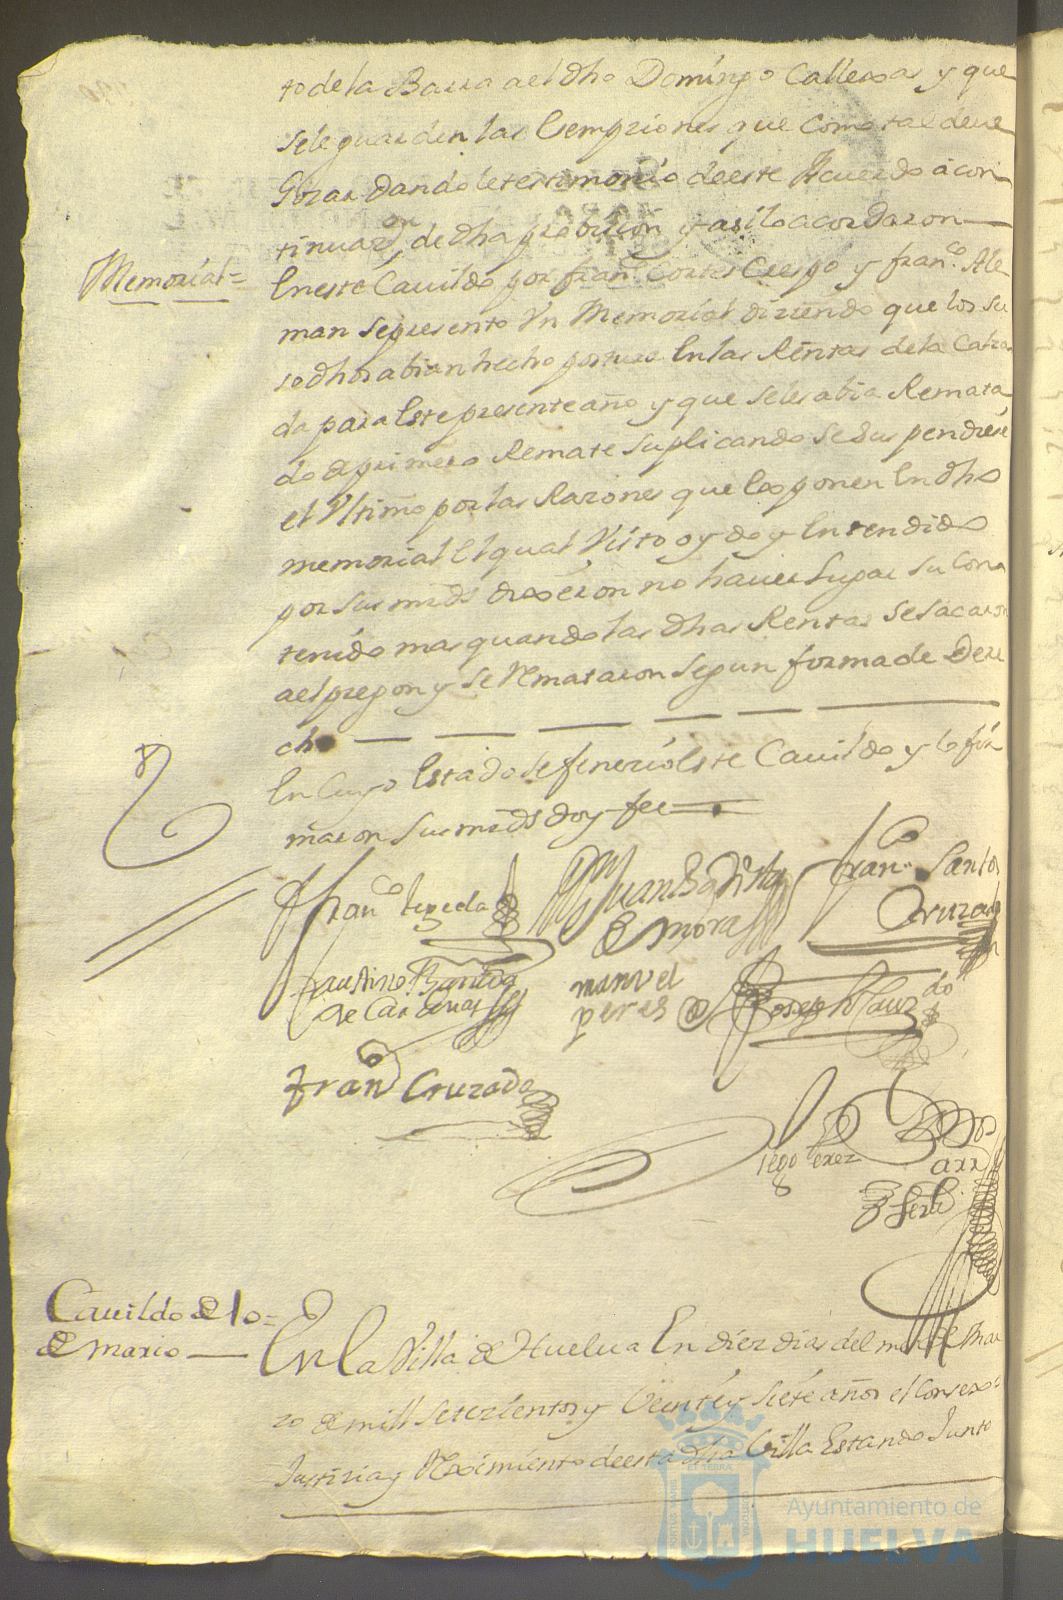 to de la Barra a el dho Domingo Callexas y que
se le guarden las Exempziones que como tal deve
Gozar dandole testimonio de este Acuerdo a con
tinuazon de dha petizion y asi lo acordaron
Memorial =
En este Cavildo por franco Cortes Crespo y franco Ale
man se presento Un Memorial diziendo que los su
so dhos abian hecho postura En las Rentas de la
da para Este presente año y que se les abia Remata
do de primero Remate suplicando se suspendiese
el Ultimo por las Razones que Exponen En dho
memorial El qual Visto oydo y Entendido
por sus mrds dixeron no haver lugar su Con
tenido mas quando las dhas Rentas se sacaron
a el pregon y se Remataron segun forma de Dere
cho
En Cuyo Estado se fenezio Este Cavildo y lo fir
maron sus mrds doy fee
Juan Baptista
de Mora
franco Santos
Cruzado
de Cardenas
manuel
peres
Joseph
fran Cruzado
Diego Perez
Cavildo de 10 =
de marzo
En la Villa de Huelva En diez dias del mes de Mar
zo de mill setezientos y Veinte y siete años el Consexo
Justizia y Reximiento de esta dha Villa Estando Junto
PORTUS MARIS
ET TERRAE
CUSTODIA
Ayuntamiento de
HUELVA